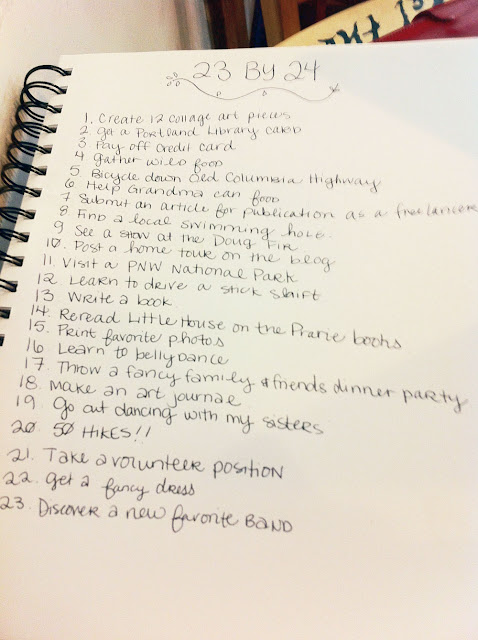 23 BY 24
1. Create 12 collage art pieces
2 get a Portland Library card
3 Pay off credit card
4 gather wild food
5 Bicycle down Old Columbia Highway
6 Help Grandma can food
7 Submit an article for publication as a freelancer
8 Find a local swimming hole.
9 See a show at the Doug Fir
10. Post a home tour on the blog
11. Visit a PNW National Park
12. Learn to drive a stick shift
13. Write a book
14. Reread Little House on the Prarie books
15. Print favorite photos
16. Learn to bellydance
17. Throw a fancy family & friends dinner party
18. Make an art journal
19. Go out dancing with my sisters
20. 50 HIKES!!
21. Take a volunteer position
22. get a fancy dress
23. Discover a new favorite BAND